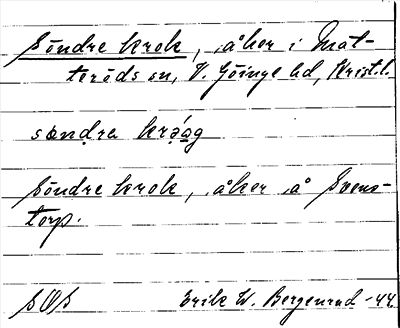 Söndre krok, åker i Mat-
teröds sn, V. Göinge hd, Krist. l.
sœndra krǫ́ag
Söndre krok, åker å Svens-
torp.
SOS Erik W. Bergenrud -44.